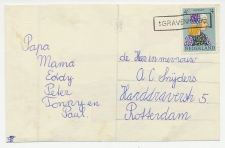 'SGRAVENDEEL
NEDERLAND
Papa
Mama
Eddy
Peter
Tonny en
Paul.
de Heer en mevrouw
A C Snijders
Harddraverstr 5
Rotterdam